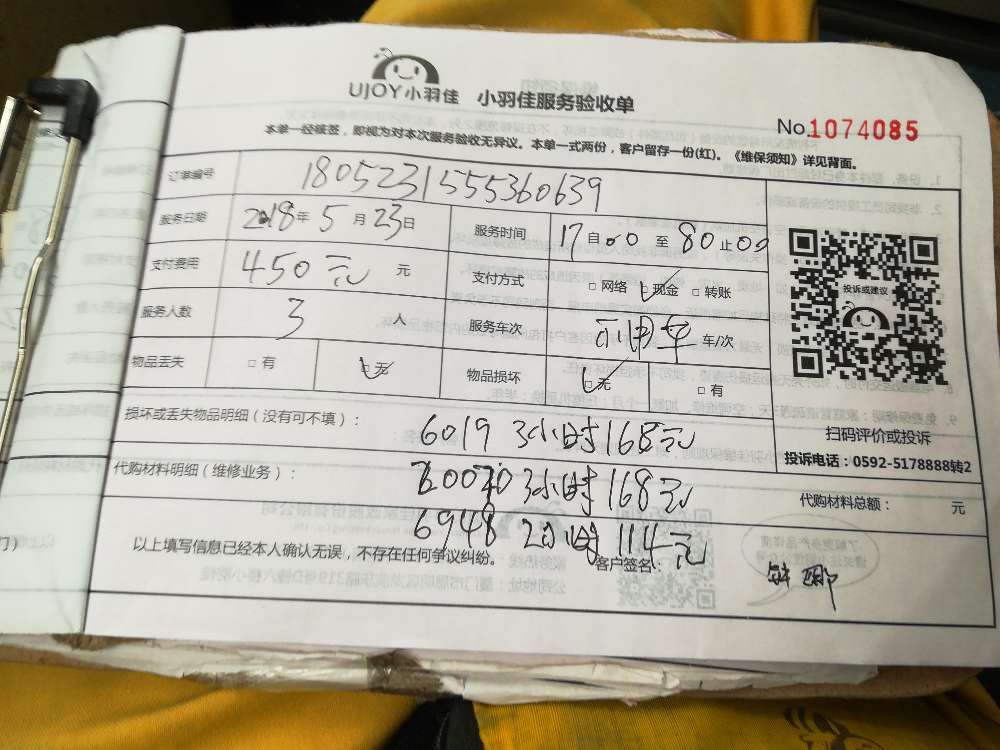 UJOY小羽佳 小羽佳服务验收单
No.1074085
本单一经核签，即视为对本次服务验收无异议。本单一式两份，客户留存一份(红)。《维保须知》详见背面。
订单编号 1805231555360639
服务日期 2018年5月23日 服务时间 17自00至80止00
支付费用 450元 元 支付方式 □网络 □现金 □转账
投诉或建议
服务人数 3 人 服务车次 车/次
物品丢失 □有 □无 物品损坏 □无 □有
扫码评价或投诉
投诉电话：0592-5178888转2
损坏或丢失物品明细（没有可不填）： 6019 3小时168元
代购材料明细（维修业务）： 3小时168元
代购材料总额： 元
6948 2小时114元
以上填写信息已经本人确认无误，不存在任何争议纠纷。 客户签名：